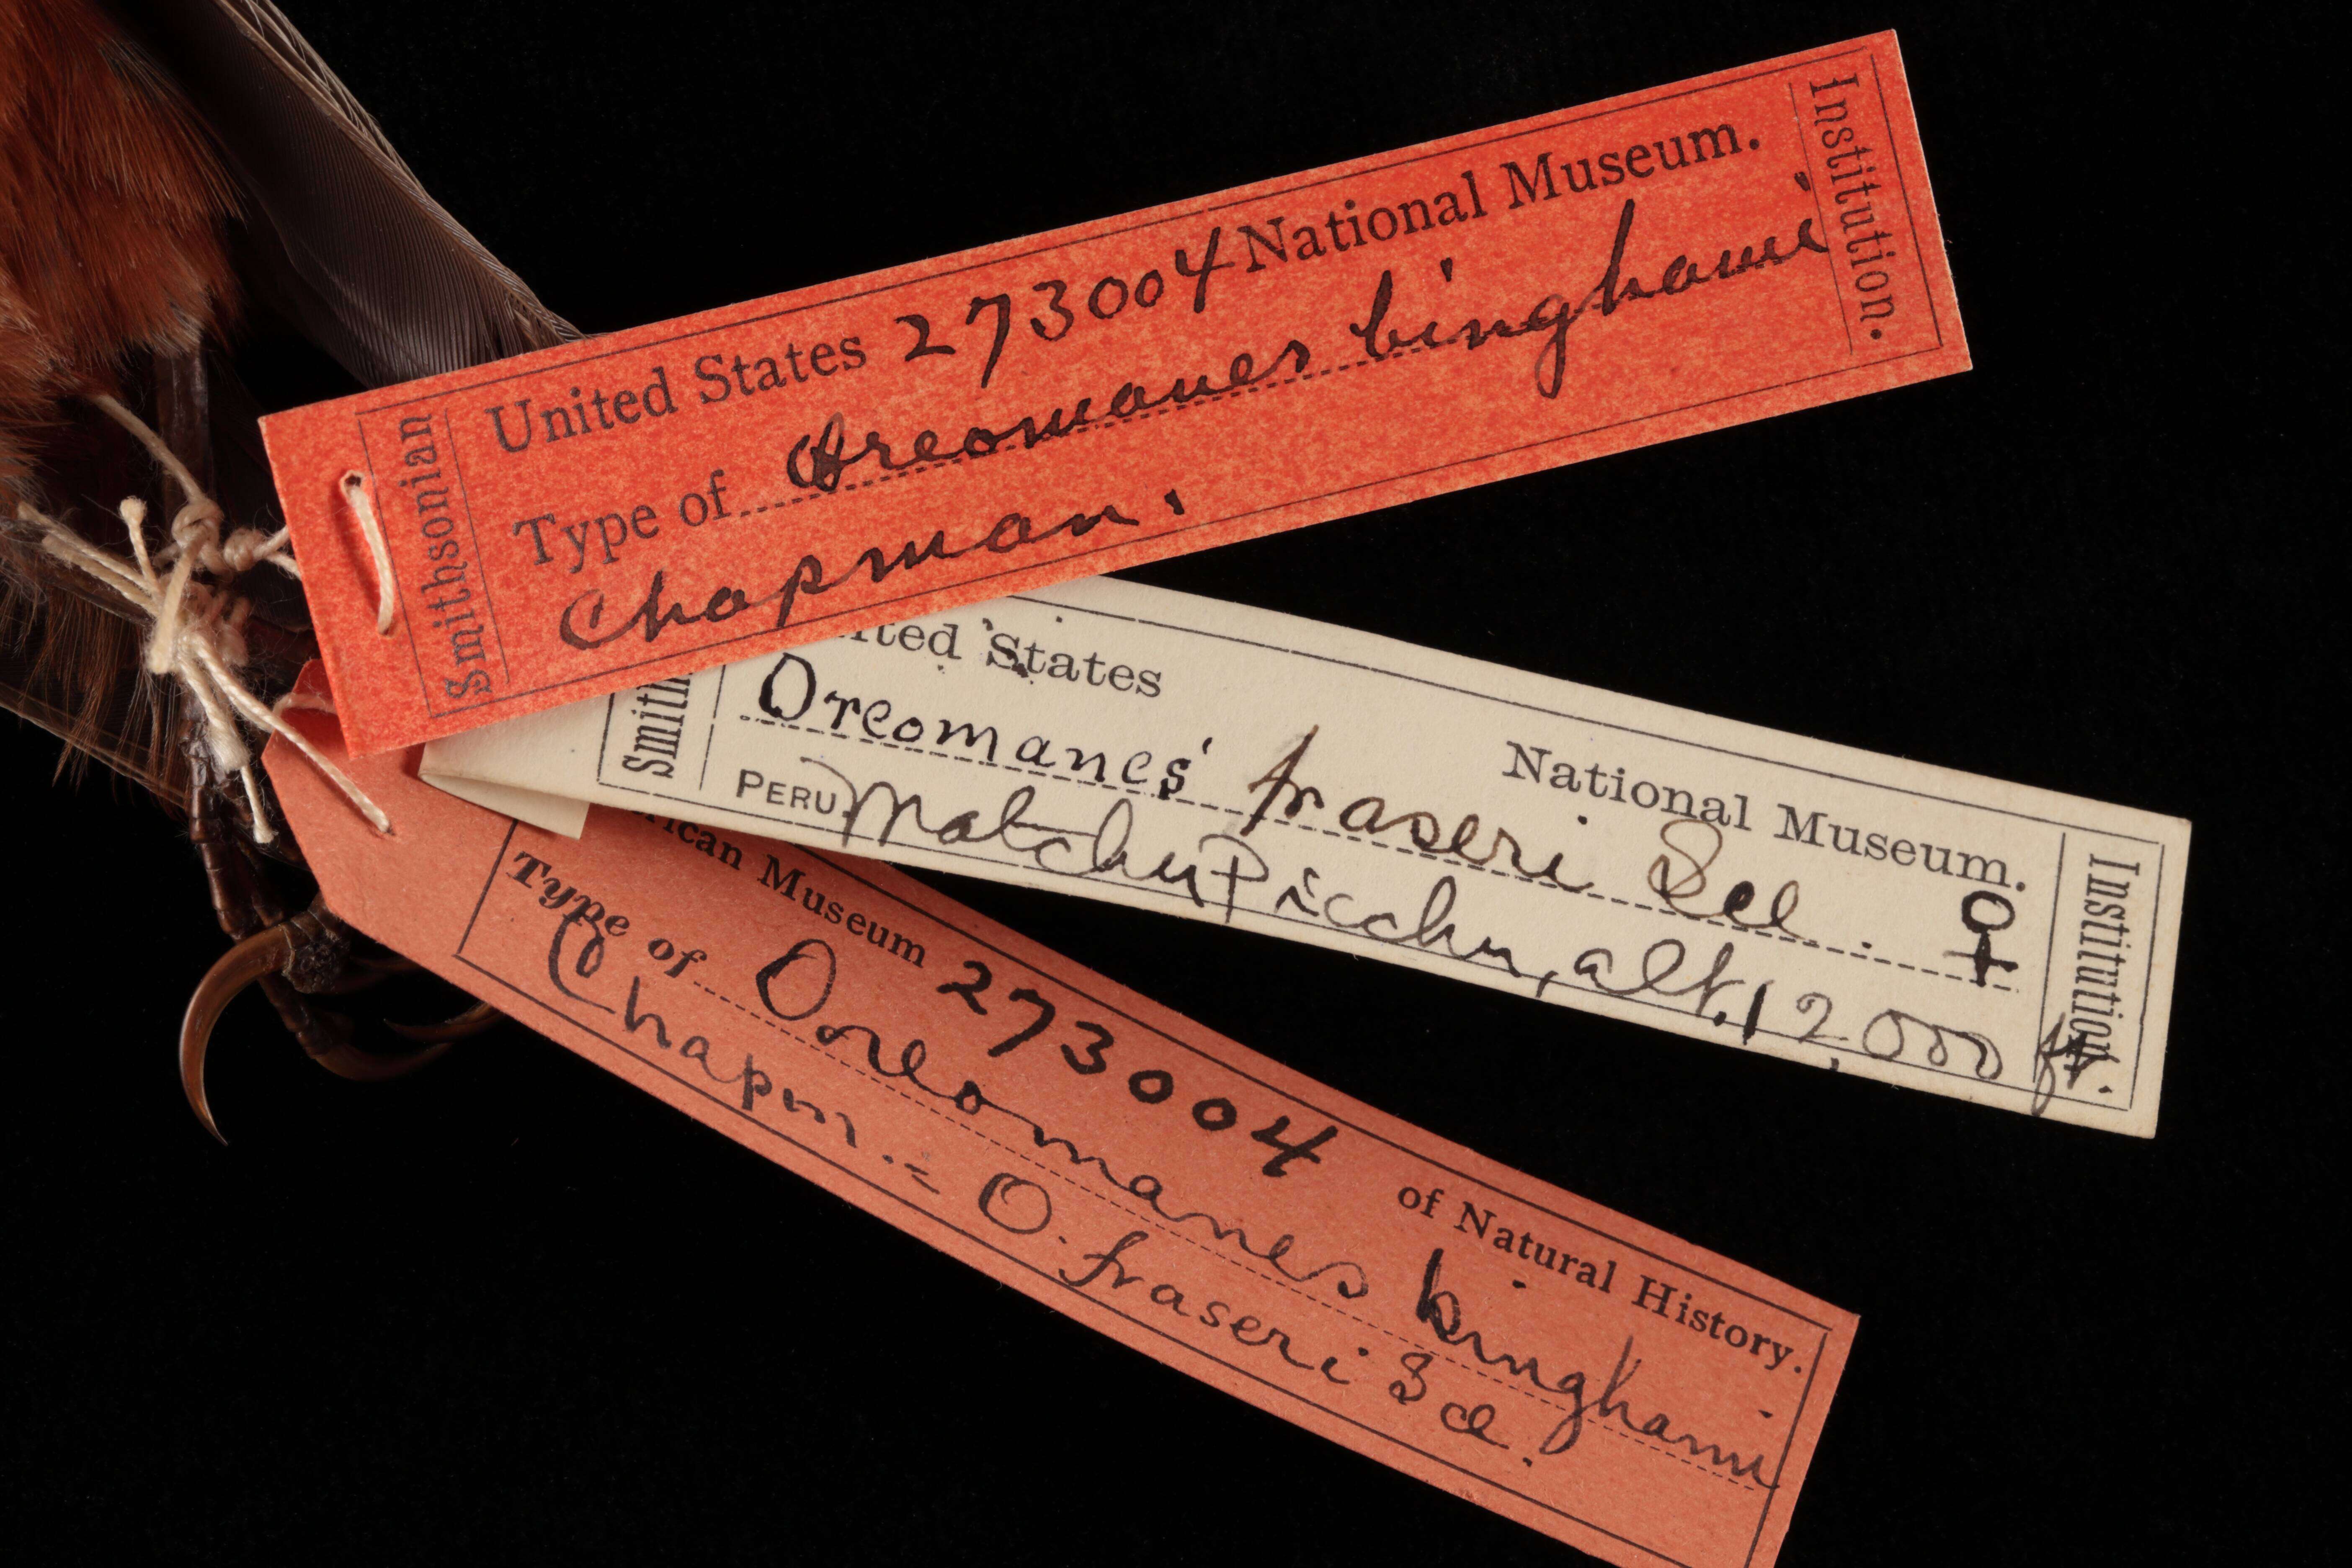 Smithsonian
United States 273004 National Museum.
Type of Oreomanes binghami
Chapman.
Institution.
Smith
ited States National Museum.
Oreomanes fraseri Scl. ♀
PERU. Matchu Picchu, alt. 12,000 ft.
Institution.
rican Museum 273004 of Natural History.
Type of Oreomanes binghami
Chapm. = O. fraseri Scl.